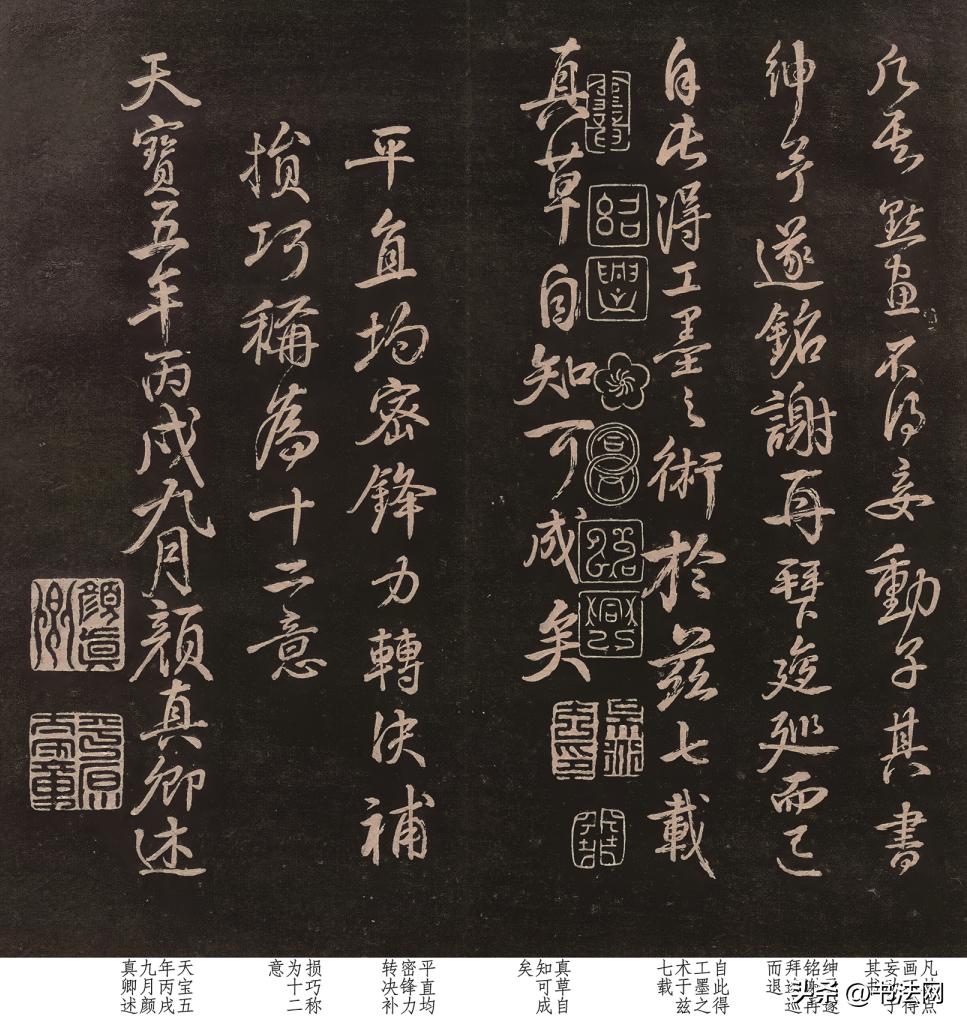 凡其點畫不得妄動子其書
紳予遂銘謝再拜逡廵而已
自此得工墨之術於茲七載
真草自知可成矣
平直均密鋒力轉決補
損巧稱為十二意
天寶五年丙戌九月顏真卿述
紹
興
紹
興
顏真卿
凡点
画得
妄子
其
绅遂
铭再
拜巡
而退
自此得
工墨之
术于兹
七载
真草自
知可成
矣
平直均
密锋力
转决补
损巧称
为十二
意
天宝五
年丙戌
九月颜
真卿述
头条 @书法网